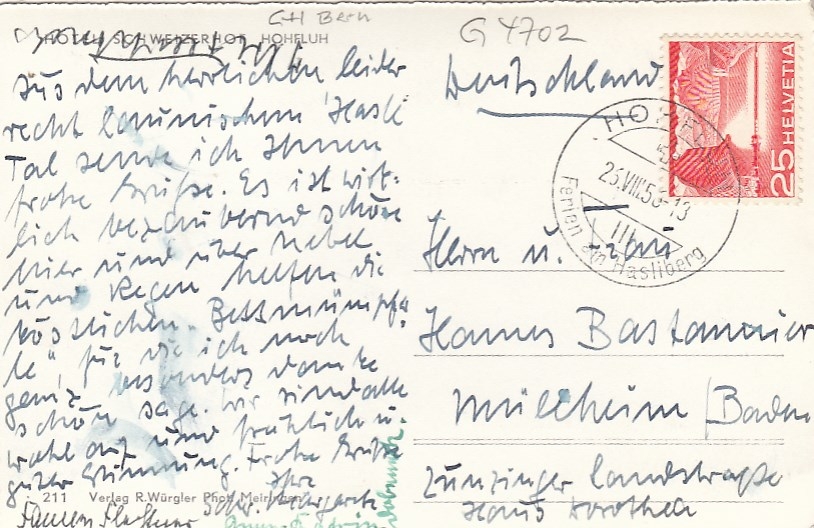 CH Bern
G 4702
HOTEL SCHWEIZERHOF, HOHFLUH
Aus dem herrlichen leider
recht launischen "Hasli
Tal sende ich Ihnen
frohe Grüsse. Es ist wirk-
lich bezaubernd schön
hier und über Nebel
und Regen helfen die
köstlichen
le", für die ich noch
ganz besonders danke
schön sage. Wir sind alle
wohl auf und fröhlich u.
guter Stimmung. Frohe Grüsse
Ihre
Schw. Margarete
211 Verlag R. Würgler Phot. Meiringen
Deutschland
HELVETIA
25
HOHFLUH
25.VIII.58-13
IIIb
Ferien am Hasliberg
Herrn u. Frau
Hannes Bastanier
Müllheim / Baden
Zunzinger Landstraße
Haus Dorothea